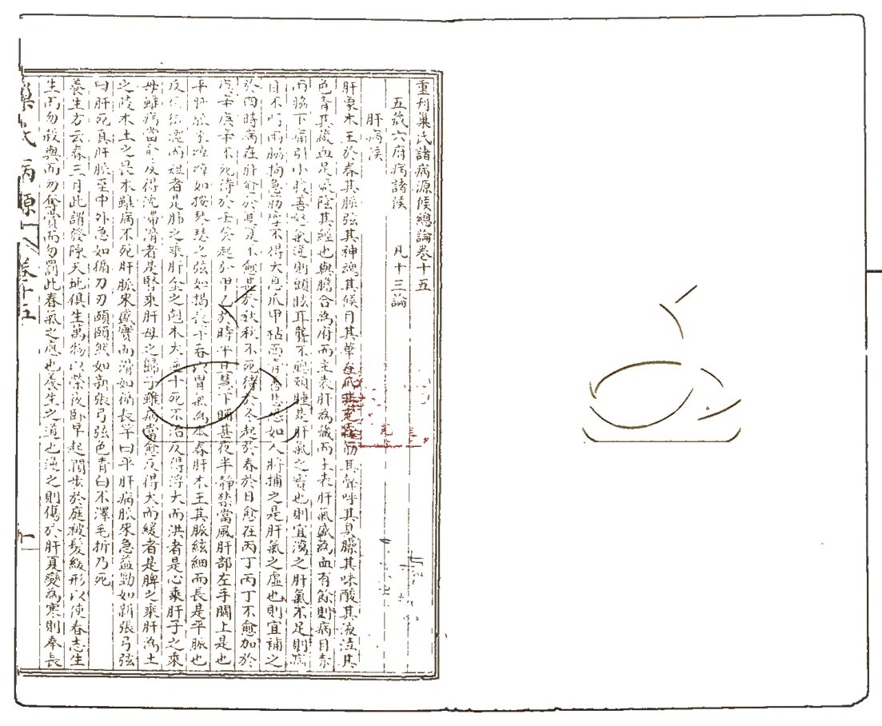 重刊巢氏諸病源候總論卷十五
五藏六府病諸候 凡十三論
肝病候
肝象木王於春其脈弦其神魂其候目其華在爪其充在筋其聲呼其臭臊其味酸其液泣其
色青其藏血足厥陰其經也與膽合為府而主表肝為藏而主裏肝氣盛為血有餘則病目赤
兩脇下痛引小腹善怒氣逆則頭眩耳聾不聰頰腫是肝氣之實也則宜瀉之肝氣不足則病
目不明兩脇拘急筋攣不得太息爪甲枯面青善悲恐如人將捕之是肝氣之虛也則宜補之
於四時病在肝愈於夏夏不愈甚於秋秋不死待於冬起於春於日愈在丙丁丙丁不愈加於
庚辛庚辛不死待於壬癸起於甲乙於時平旦慧下晡甚夜半靜禁當風肝部左手關上是也
平肝脈來濡弱如按琴瑟之弦如揭長竿春以胃氣為本春肝木王其脈絃細而長是平脈也
反得微濇而短者是肺之乘肝金之剋木大逆十死不治反得浮大而洪者是心乘肝子之乘
母雖病當愈反得沈濡滑者是腎乘肝母之歸子雖病當愈反得大而緩者是脾之乘肝為土
之陵木土之畏木雖病不死肝脈來盛實而滑如循長竿曰平肝病脈來急益勁如新張弓弦
曰肝死真肝脈至中外急如循刀刃賾賾然如新張弓弦色青白不澤毛折乃死
養生方云春三月此謂發陳天地俱生萬物以榮夜臥早起闊步於庭被髮緩形以使春志生
生而勿殺與而勿奪賞而勿罰此春氣之應也養生之道也逆之則傷於肝夏變為寒則奉長
巢氏病源 卷十五 一